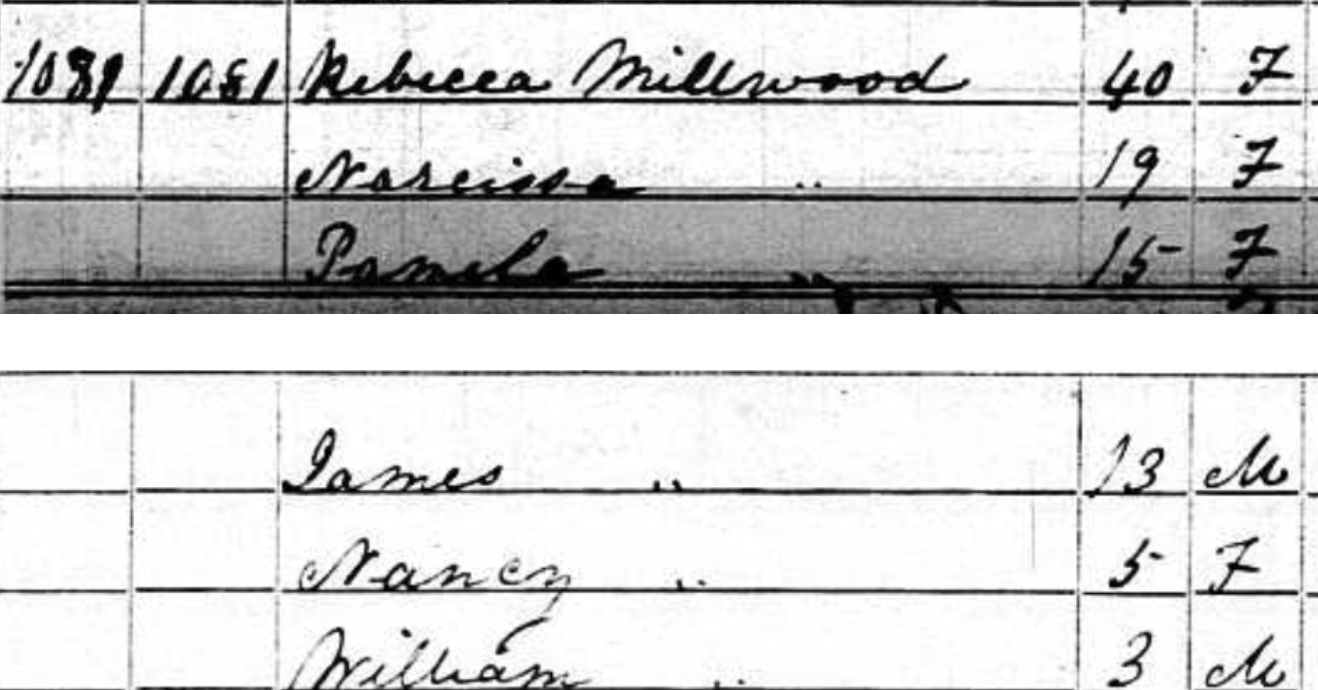 1081 1081 Rebecca Millwood 40 F
Narcissa " 19 F
Pamela " 15 F
James " 13 M
Nancy " 5 F
William " 3 M